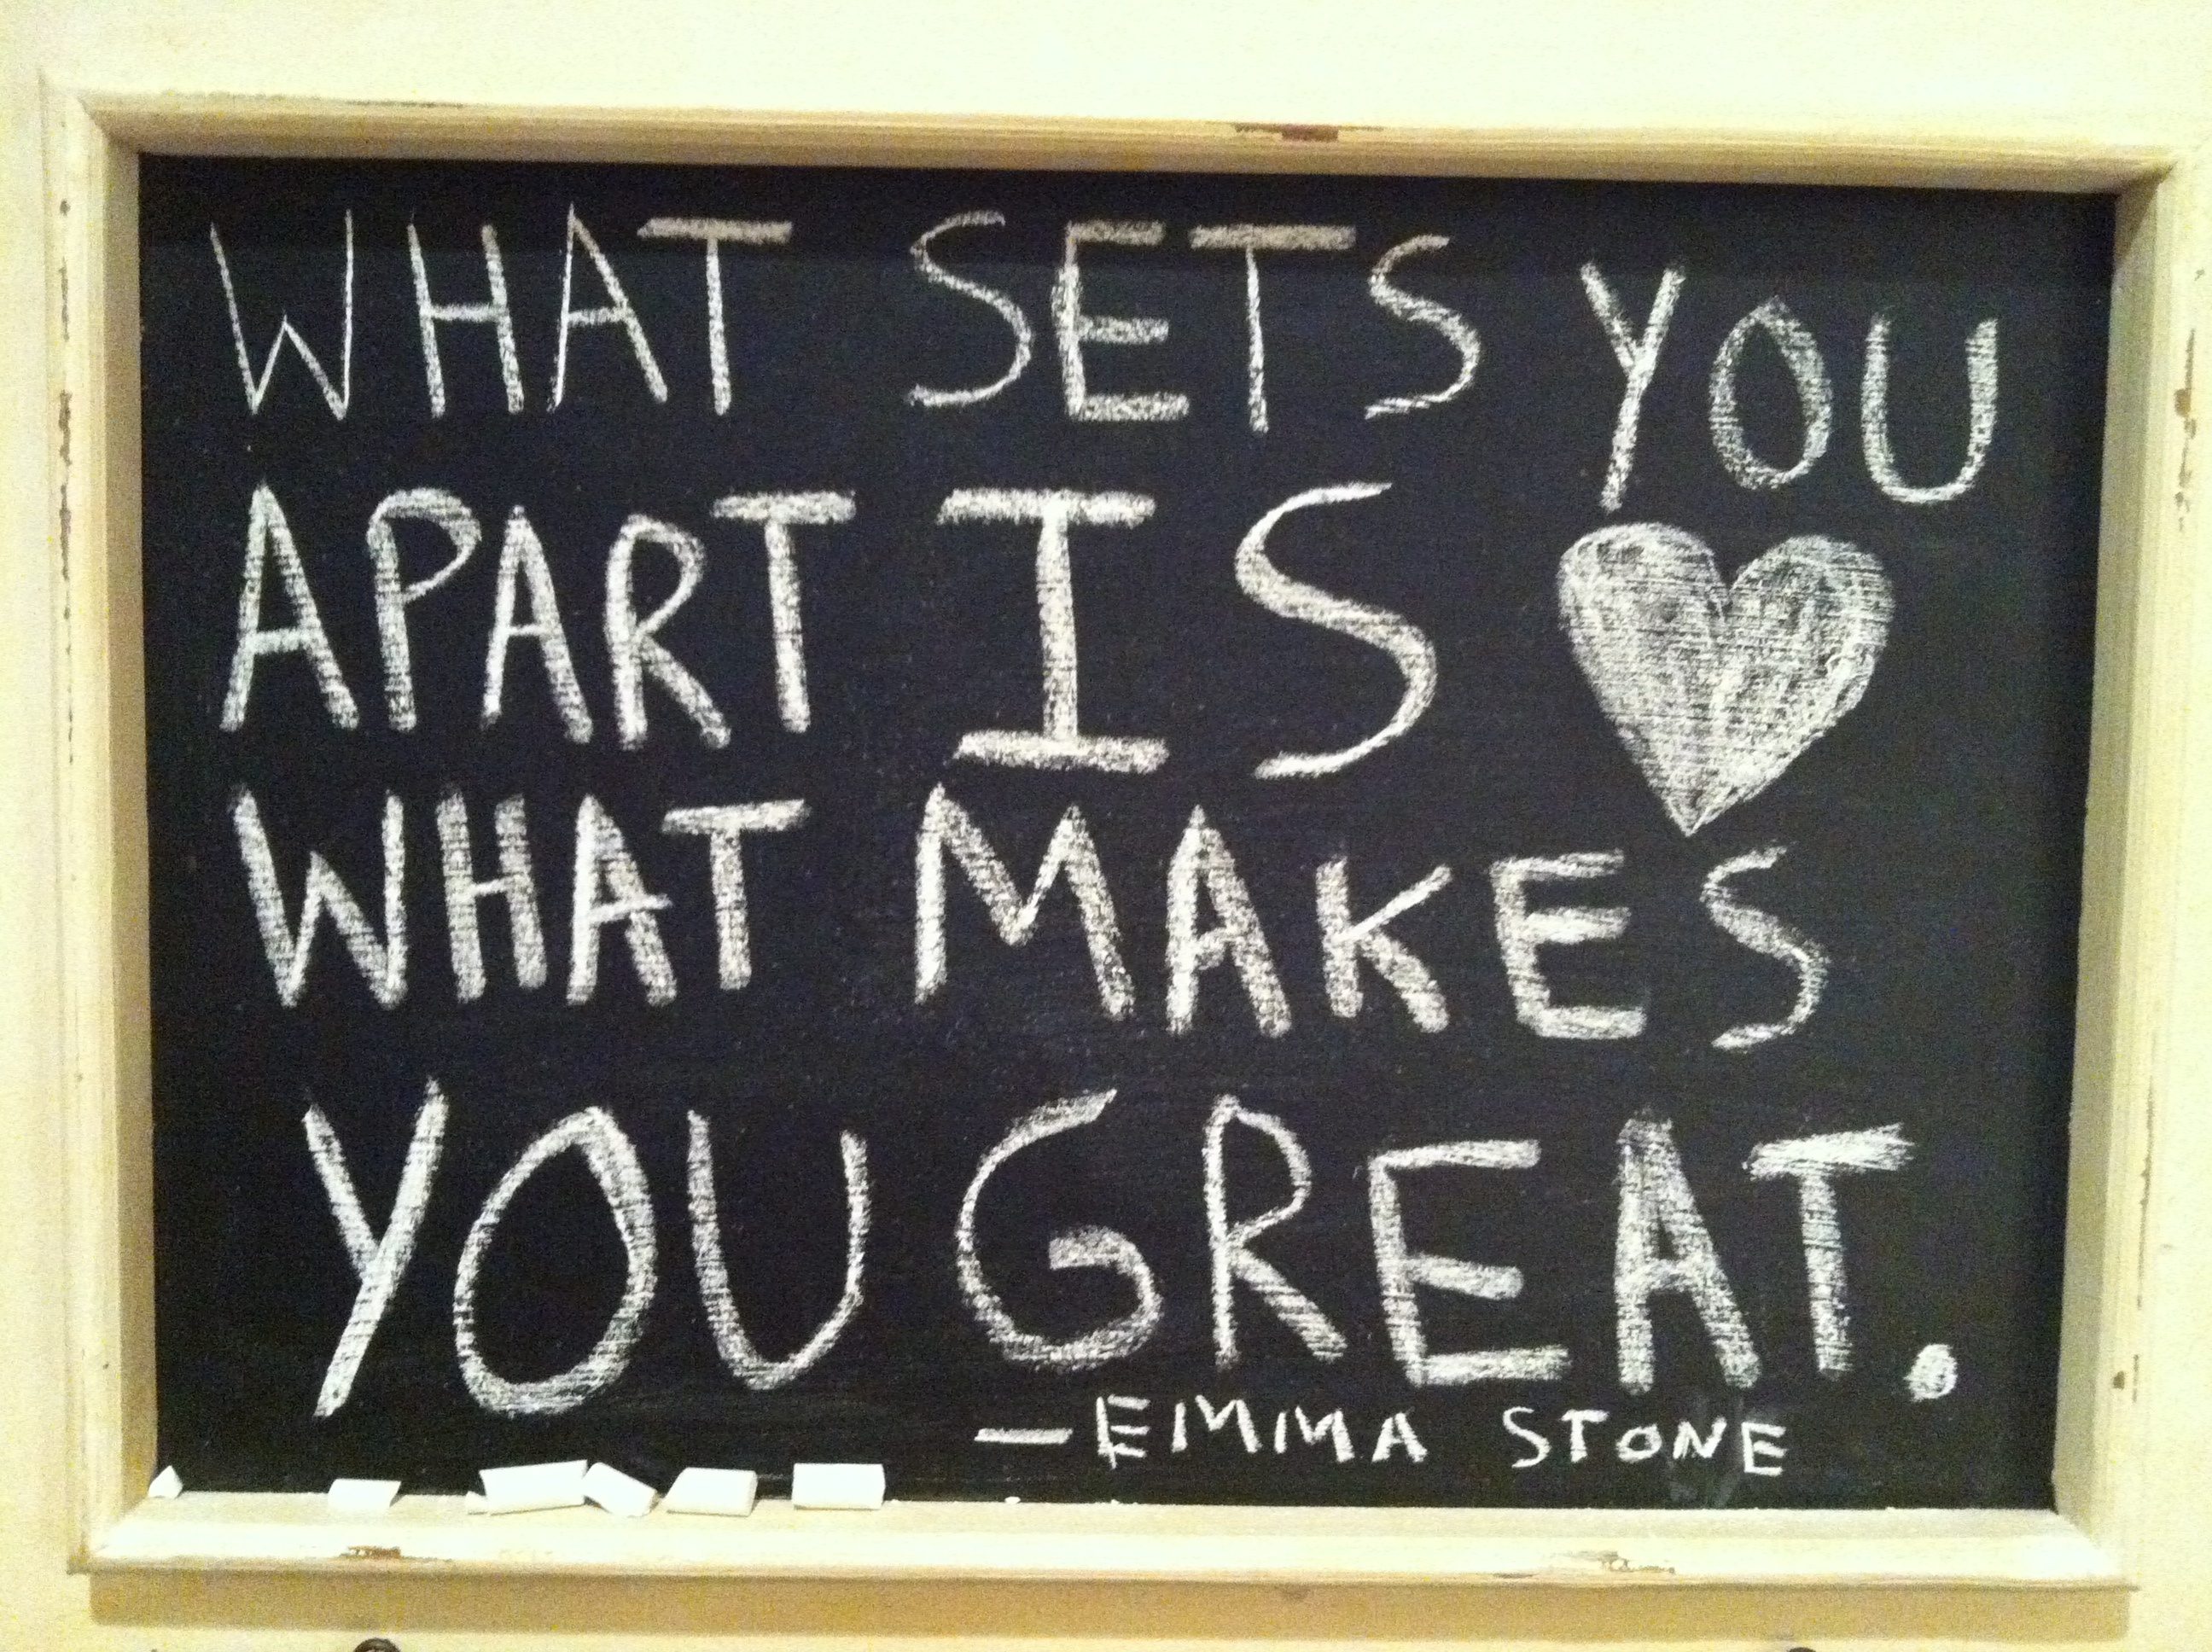 WHAT SETS YOU
APART IS
WHAT MAKES
YOU GREAT.
—EMMA STONE